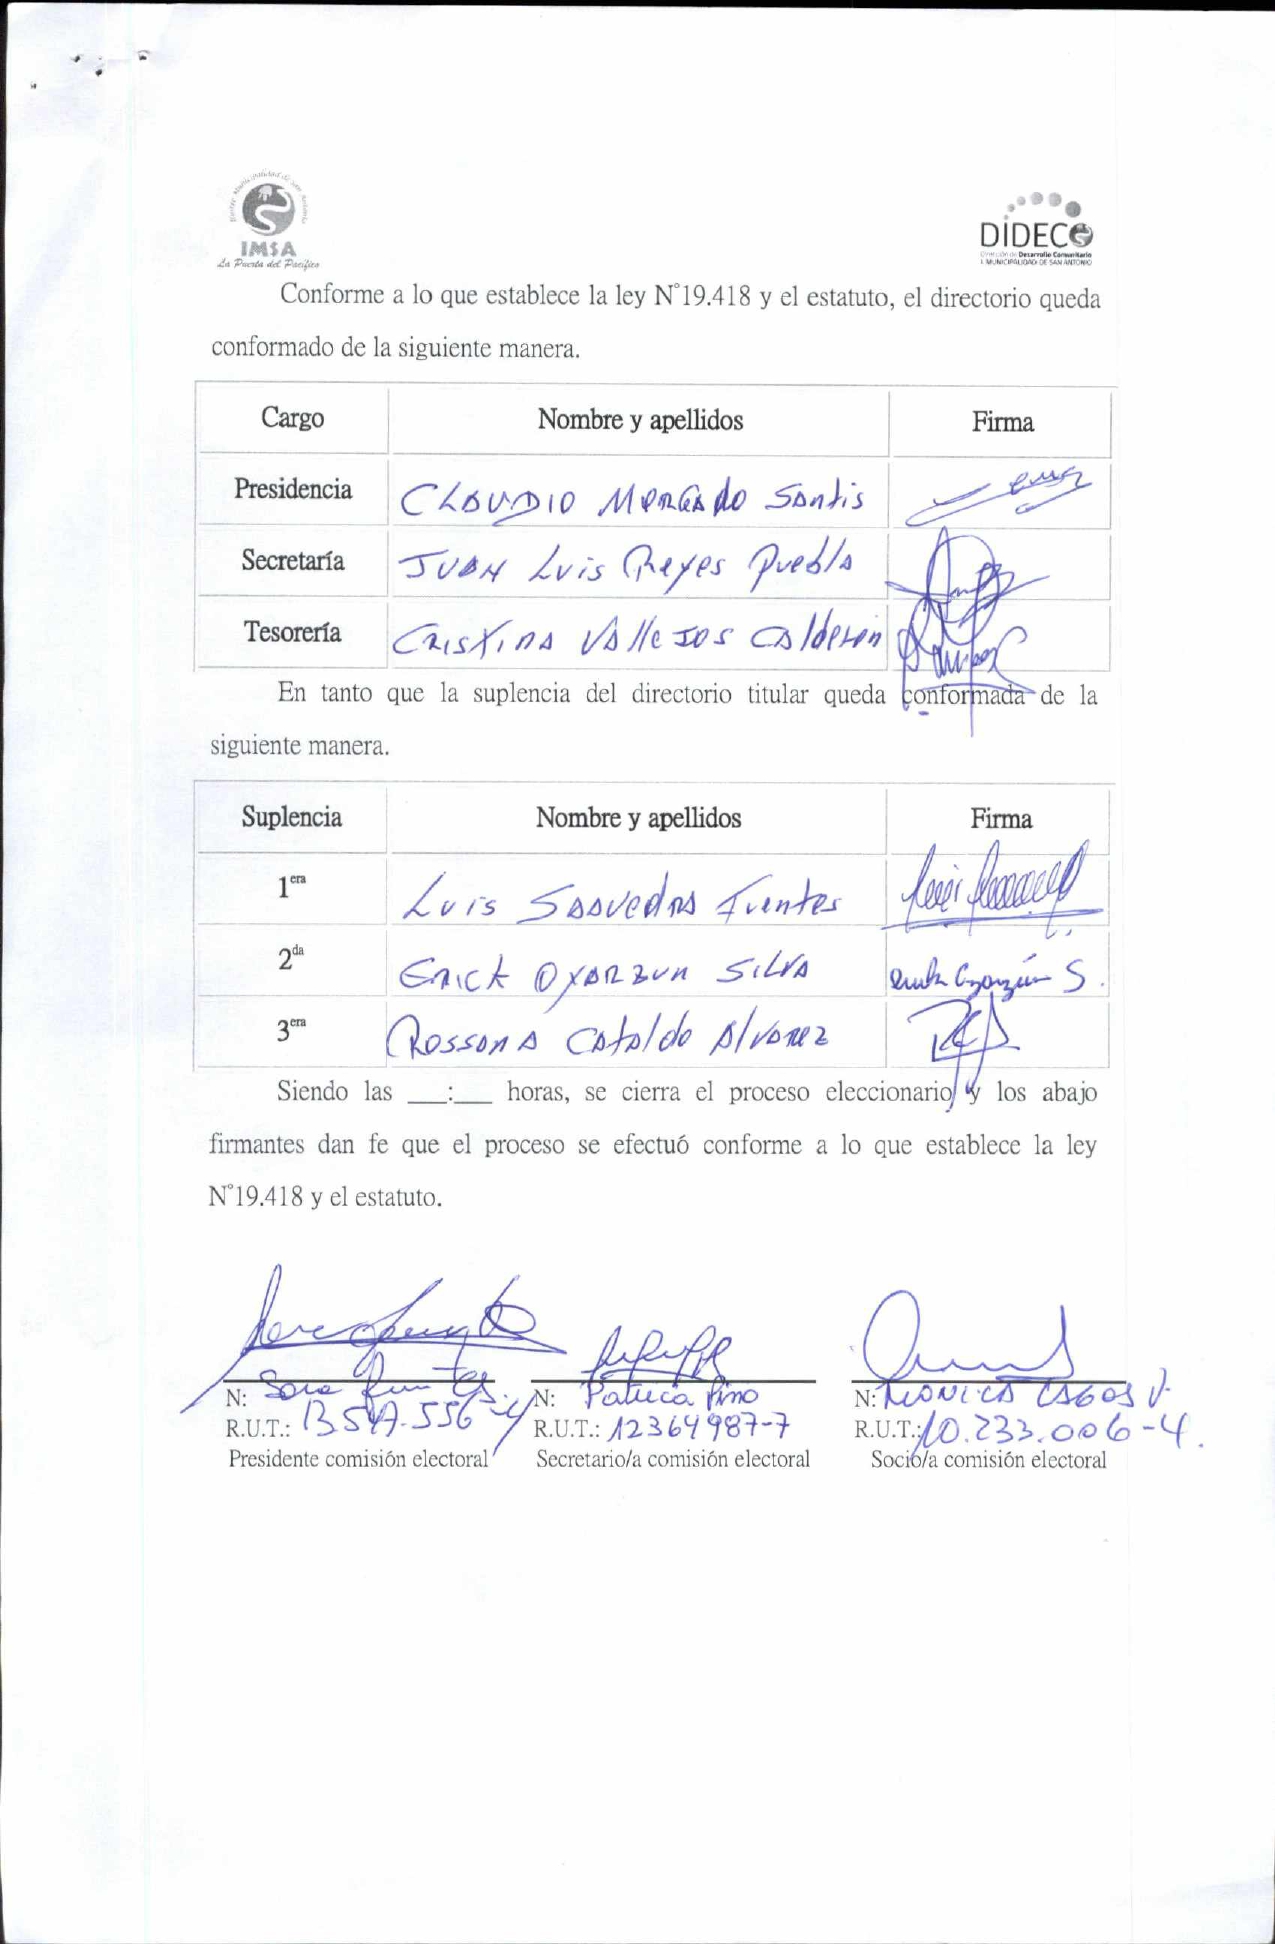 Ilustre Municipalidad de San Antonio
IMSA
La Puerta del Pacífico
DIDECO
Dirección de Desarrollo Comunitario
I. MUNICIPALIDAD DE SAN ANTONIO
Conforme a lo que establece la ley N°19.418 y el estatuto, el directorio queda
conformado de la siguiente manera.
Cargo Nombre y apellidos Firma
Presidencia CLAUDIO MORGADO SANTIS
Secretaría JUAN Luis Reyes Puebla
Tesorería CRISTINA VALLEJOS CALDERÓN
En tanto que la suplencia del directorio titular queda conformada de la
siguiente manera.
Suplencia Nombre y apellidos Firma
1era Luis SAAVEDRA Fuentes
2da ERICK OYARZUN SILVA
3era ROSSANA CATALDO ALVAREZ
Siendo las ___:___ horas, se cierra el proceso eleccionario y los abajo
firmantes dan fe que el proceso se efectuó conforme a lo que establece la ley
N°19.418 y el estatuto.
N: Sara N: Patricia Pino N: MONICA LAGOS V.
R.U.T.: R.U.T.: 12364987-7 R.U.T.: 10.233.006-4.
Presidente comisión electoral Secretario/a comisión electoral Socio/a comisión electoral